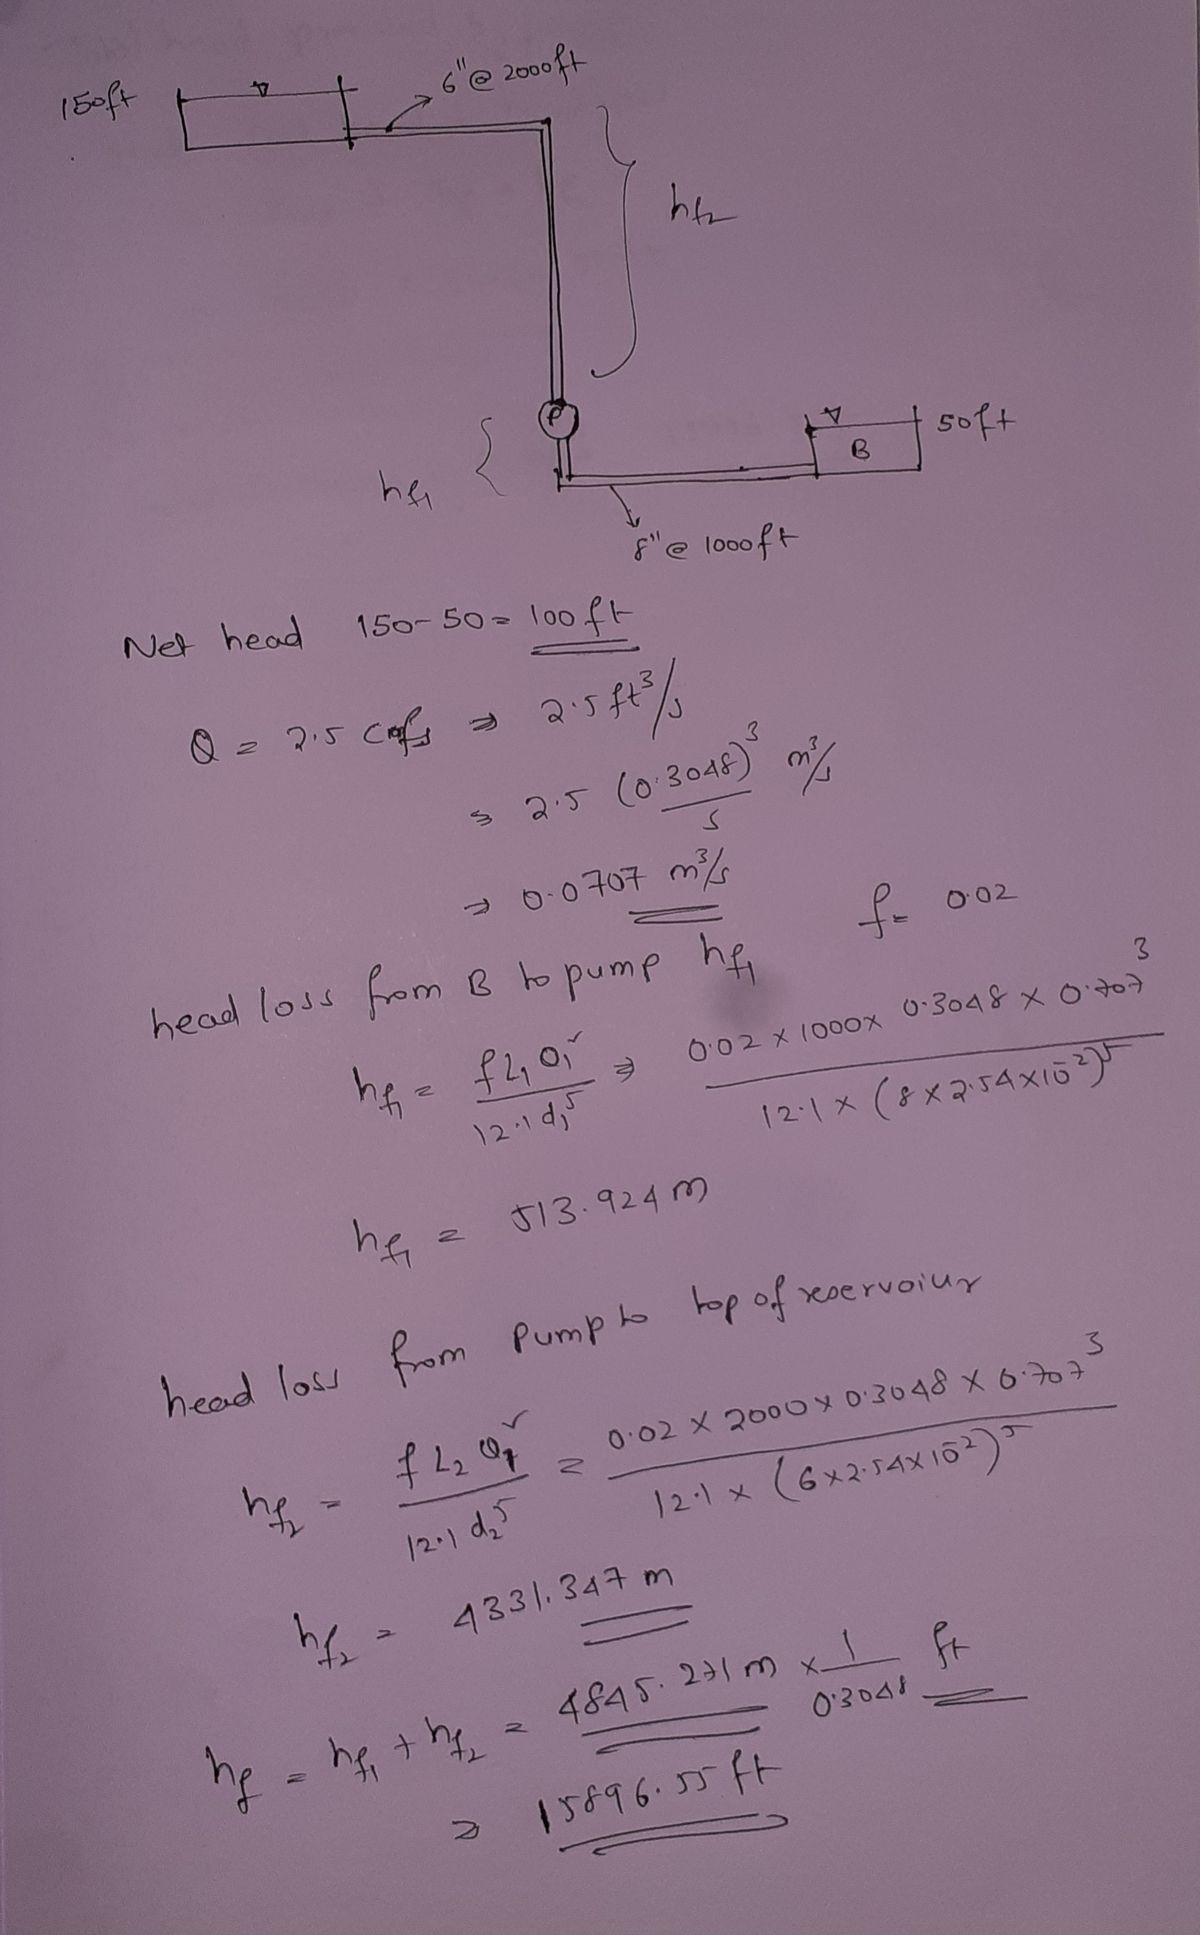 150ft
6"@ 2000ft
hf2
P
50ft
B
hf1
8"@ 1000ft
Net head 150-50= 100ft
Q = 2.5 cfs ⇒ 2.5 ft³/s
⇒ 2.5 (0.3048)³/s m³/s
⇒ 0.0707 m³/s
f= 0.02
head loss from B to pump hf1
hf1 = fL1Q1²/12.1d1⁵ ⇒ 0.02 x 1000x 0.3048 x 0.707³/12.1x (8x2.54x10⁻²)⁵
hf1 = 513.924m
head loss from pump to top of reservoiur
hf2 = fL2Q2²/12.1d2⁵ = 0.02 x 2000x0.3048 x 0.707³/12.1x (6x2.54x10⁻²)⁵
hf2 = 4331.347m
hf = hf1 + hf2 = 4845.271m x 1/0.3048 ft
⇒ 15896.55ft